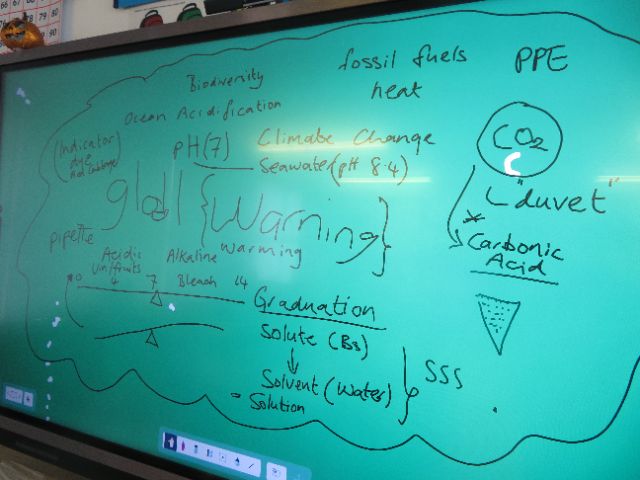 Biodiversity
fossil fuels
PPE
heat
Ocean Acidification
(Indicator)
dye
Red Cabbage
pH(7)
Climate Change
Seawater (pH 8.4)
CO2
"duvet"
{Warning}
warming
pipette
Acidic
Alkaline
Bleach
0
4
7
14
Carbonic
Acid
Graduation
Solute (Bs)
Solvent (Water)
= Solution
SSS